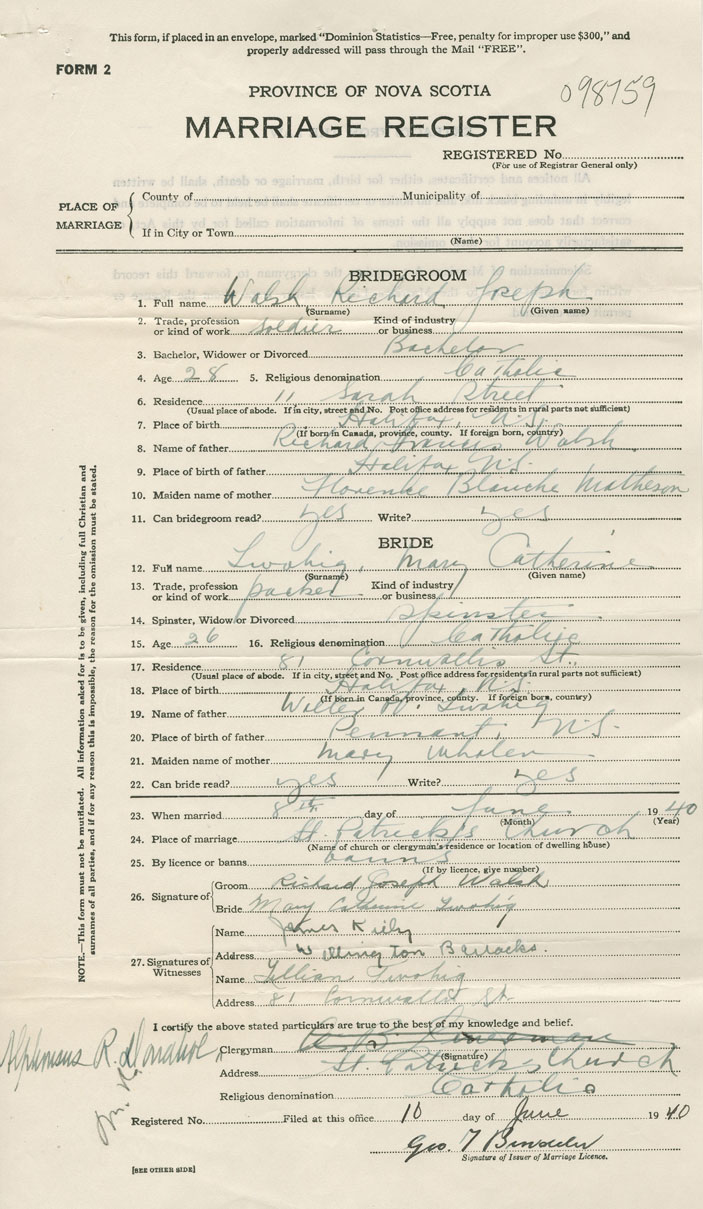 This form, if placed in an envelope, marked "Dominion Statistics—Free, penalty for improper use $300," and
properly addressed will pass through the Mail "FREE".
FORM 2
PROVINCE OF NOVA SCOTIA
098759
MARRIAGE REGISTER
REGISTERED No.
(For use of Registrar General only)
PLACE OF MARRIAGE
County of Municipality of
If in City or Town
(Name)
BRIDEGROOM
1. Full name Walsh Richard Joseph
(Surname) (Given name)
2. Trade, profession or kind of work soldier Kind of industry or business
3. Bachelor, Widower or Divorced Bachelor
4. Age 28 5. Religious denomination Catholic
6. Residence 11 Sarah Street
(Usual place of abode. If in city, street and No. Post office address for residents in rural parts not sufficient)
7. Place of birth Halifax, N.S.
(If born in Canada, province, county. If foreign born, country)
8. Name of father Richard Francis Walsh
9. Place of birth of father Halifax N.S.
10. Maiden name of mother Florence Blanche Matheson
11. Can bridegroom read? yes Write? yes
BRIDE
12. Full name Twohig, Mary Catherine
(Surname) (Given name)
13. Trade, profession or kind of work packer Kind of industry or business
14. Spinster, Widow or Divorced Spinster
15. Age 26 16. Religious denomination Catholic
17. Residence 81 Cornwallis St.
(Usual place of abode. If in city, street and No. Post office address for residents in rural parts not sufficient)
18. Place of birth Halifax N.S.
(If born in Canada, province, county. If foreign born, country)
19. Name of father Walter W. Twohig
20. Place of birth of father Pennant, N.S.
21. Maiden name of mother Mary Whalen
22. Can bride read? yes Write? yes
23. When married 8th day of June 1940
(Month) (Year)
24. Place of marriage St. Patrick's Church
(Name of church or clergyman's residence or location of dwelling house)
25. By licence or banns banns
(If by licence, give number)
26. Signature of
Groom Richard Joseph Walsh
Bride Mary Catherine Twohig
27. Signatures of Witnesses
Name James Kiely
Address Wellington Barracks.
Name Lillian Twohig
Address 81 Cornwallis St
I certify the above stated particulars are true to the best of my knowledge and belief.
Alphonsus R. Donahoe
Clergyman
(Signature)
Address St. Patrick's Church
Religious denomination Catholic
Registered No. Filed at this office 10 day of June 1940
Geo T
Signature of Issuer of Marriage Licence.
[SEE OTHER SIDE]
NOTE.—This form must not be mutilated. All information asked for is to be given, including full Christian and
surnames of all parties, and if for any reason this is impossible, the reason for the omission must be stated.